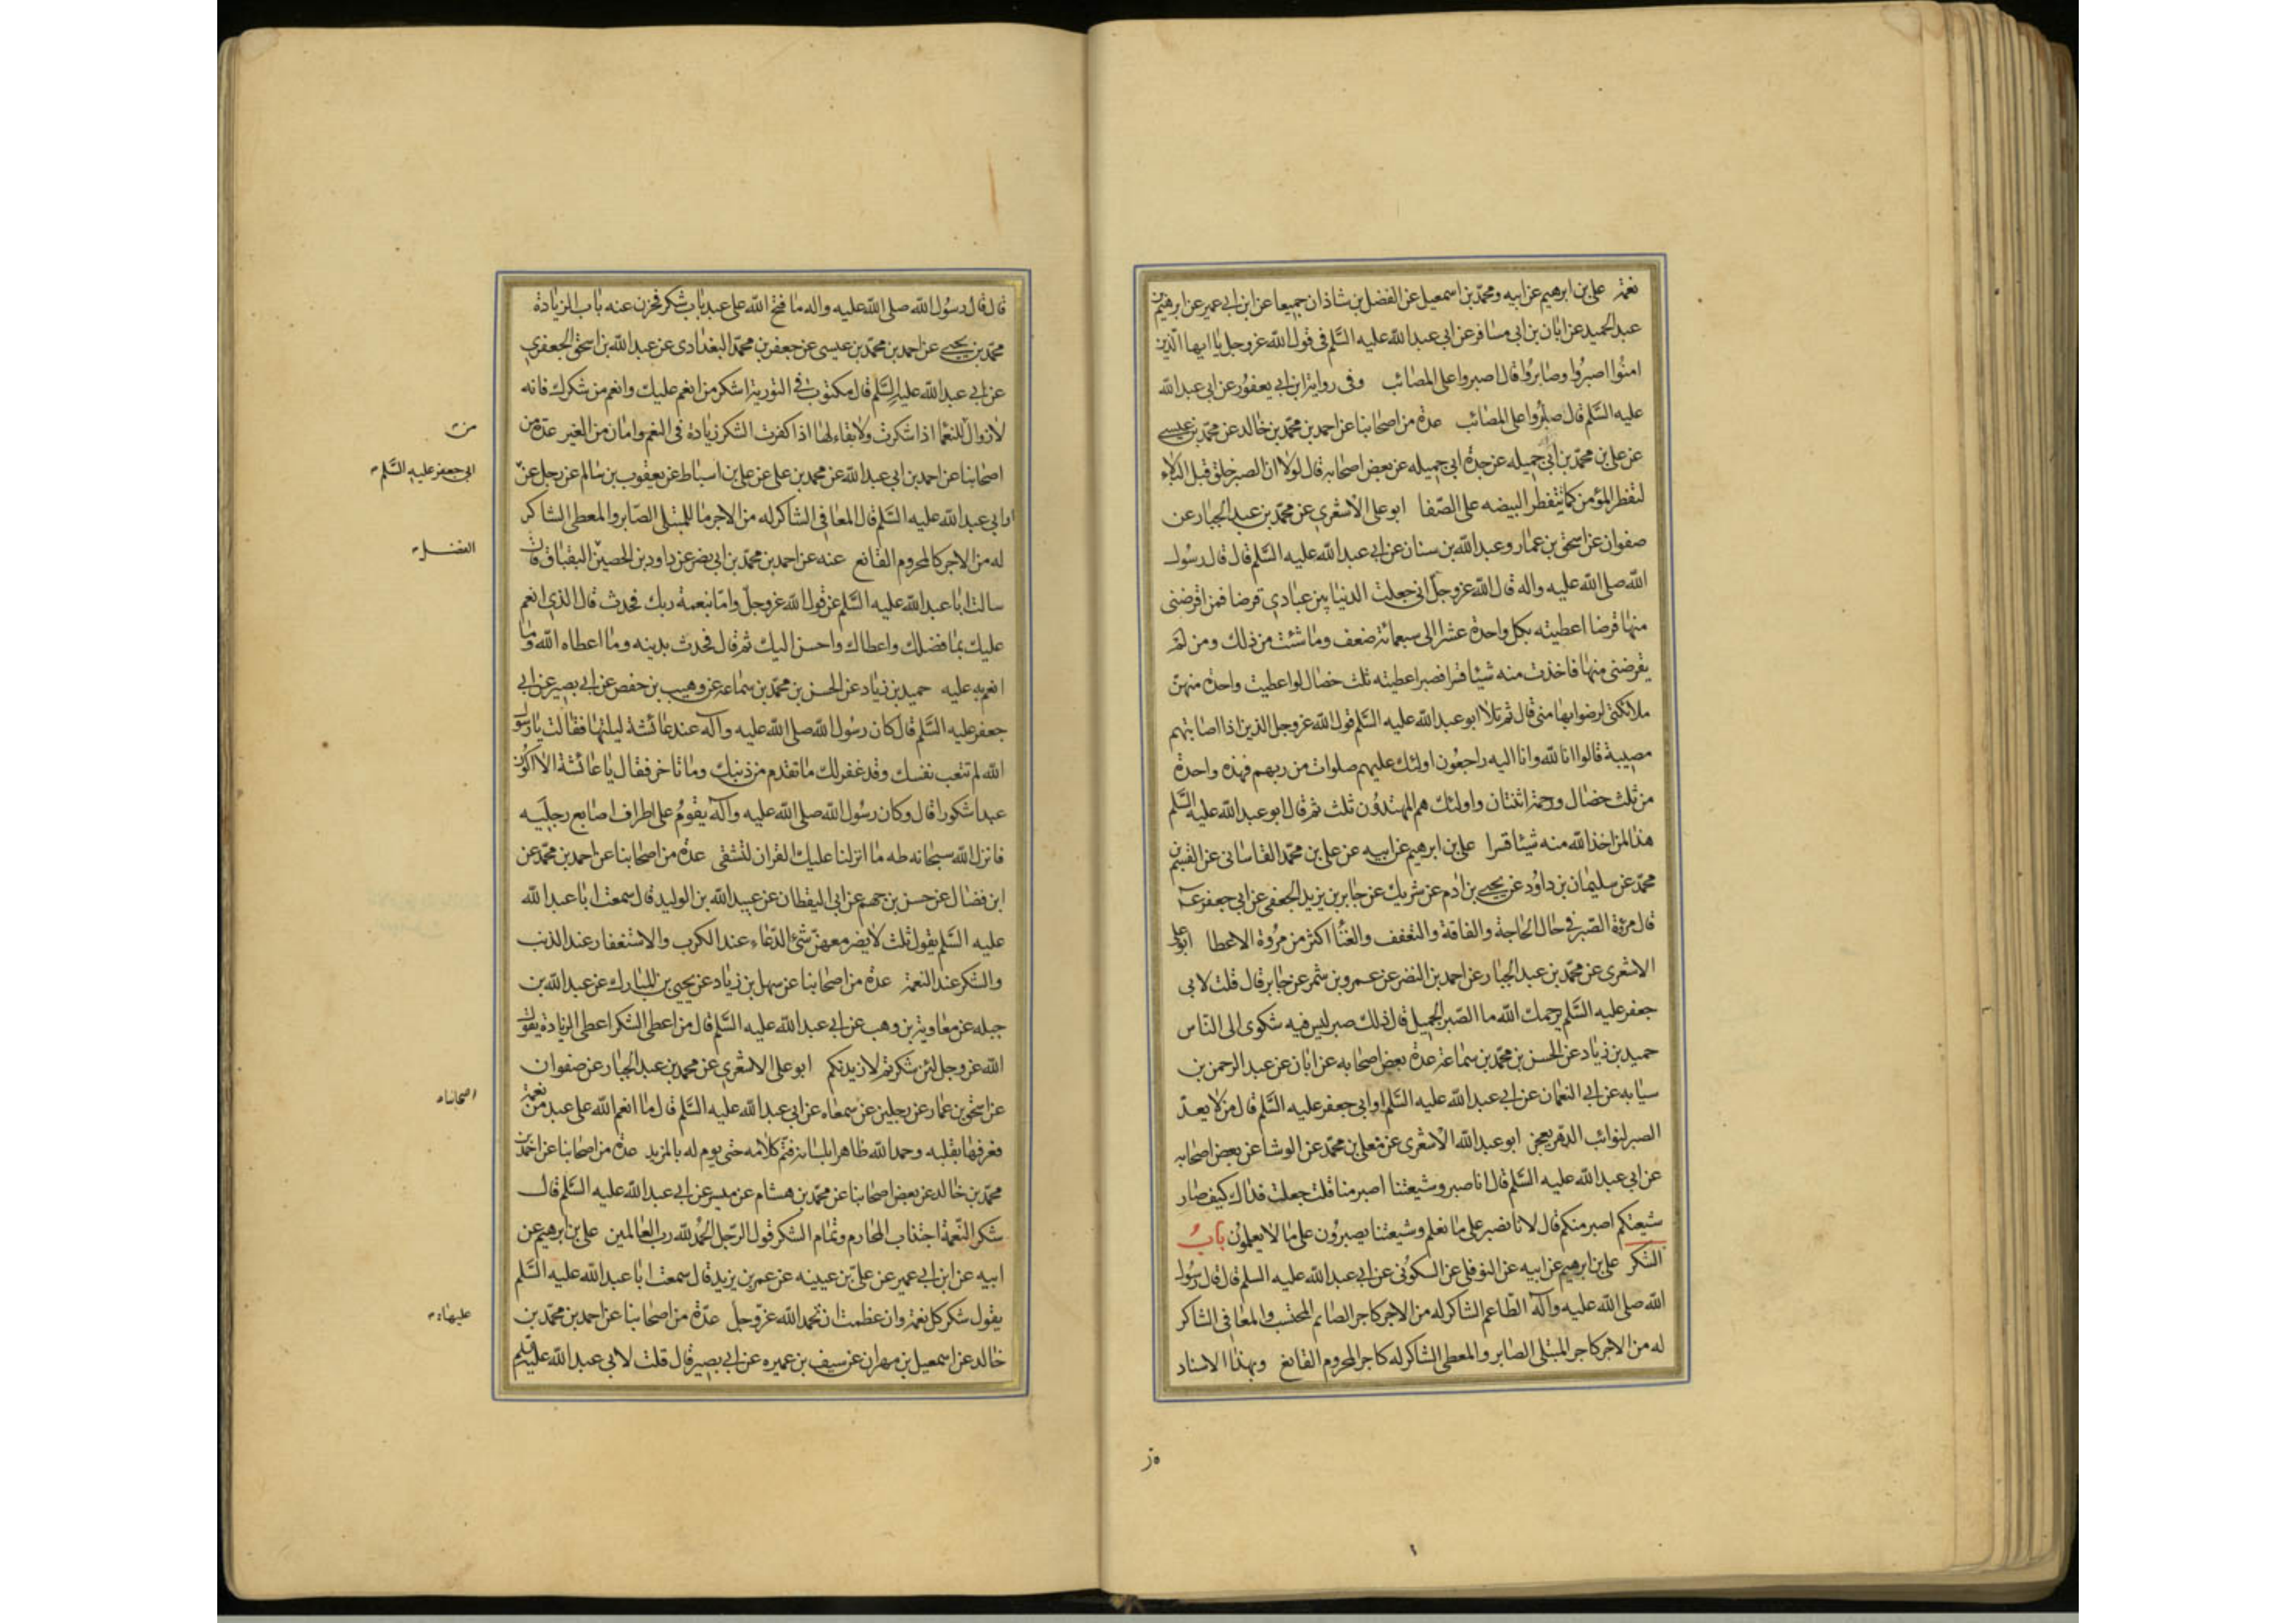 نعمة علي بن ابرهيم عن ابيه ومحمد بن اسمعيل عن الفضل بن شاذان جميعا عن ابن ابي عمير عن ابرهيم بن
عبد الحميد عن ابان بن ابي مسافر عن ابي عبد الله عليه السلم في قول الله عز وجل يا ايها الذين
امنوا اصبروا وصابروا قال اصبروا على المصائب وفي رواية ابن ابي يعفور عن ابي عبد الله
عليه السلم قال صابروا على المصائب عدة من اصحابنا عن احمد بن محمد بن خالد عن محمد بن عيسى
عن علي بن محمد بن ابي جميله عن جده ابي جميله عن بعض اصحابه قال لولا ان الصبر خلق قبل البلاء
لتفطر المؤمن كما تتفطر البيضه على الصفا ابو علي الاشعري عن محمد بن عبد الجبار عن
صفوان عن اسحق بن عمار وعبد الله بن سنان عن ابي عبد الله عليه السلم قال قال رسول
الله صلى الله عليه واله قال الله عز وجل اني جعلت الدنيا بين عبادي قرضا فمن اقرضني
منها قرضا اعطيته بكل واحدة عشرا الى سبعمائة ضعف وما شئت من ذلك ومن لم
يقرضني منها فاخذت منه شيئا قسرا فصبر اعطيته ثلث خصال لو اعطيت واحدة منهن
ملائكتي لرضوا بها مني قال ثم تلا ابو عبد الله عليه السلم قول الله عز وجل الذين اذا اصابتهم
مصيبة قالوا انا لله وانا اليه راجعون اولئك عليهم صلوات من ربهم فهذه واحدة
من ثلث خصال ورحمة اثنتان واولئك هم المهتدون ثلث ثم قال ابو عبد الله عليه السلم
هذا لمن اخذ الله منه شيئا قسرا علي بن ابرهيم عن ابيه عن علي بن محمد القاساني عن القسم بن
محمد عن سليمان بن داود عن يحيى بن ادم عن شريك عن جابر بن يزيد الجعفي عن ابي جعفر ع
قال مروة الصبر في حال الحاجة والفاقة والتعفف والغنا اكثر من مروة الاعطا ابو علي
الاشعري عن محمد بن عبد الجبار عن احمد بن النضر عن عمرو بن شمر عن جابر قال قلت لابي
جعفر عليه السلم يرحمك الله ما الصبر الجميل قال ذلك صبر ليس فيه شكوى الى الناس
حميد بن زياد عن الحسن بن محمد بن سماعة عدة بعض اصحابه عن ابان عن عبد الرحمن بن
سيابه عن ابي النعمان عن ابي عبد الله عليه السلم او ابي جعفر عليه السلم قال من لا يعد
الصبر لنوائب الدهر يعجز ابو عبد الله الاشعري عن معلى بن محمد عن الوشا عن بعض اصحابه
عن ابي عبد الله عليه السلم قال انا صبر وشيعتنا اصبر منا قلت جعلت فداك كيف صار
شيعتكم اصبر منكم قال لانا نصبر على ما نعلم وشيعتنا يصبرون على ما لا يعلمون باب
الشكر علي بن ابرهيم عن ابيه عن النوفلي عن السكوني عن ابي عبد الله عليه السلم قال قال رسول
الله صلى الله عليه وآله الطاعم الشاكر له من الاجر كاجر الصائم المحتسب والمعافى الشاكر
له من الاجر كاجر المبتلى الصابر والمعطى الشاكر له كاجر المحروم القانع وبهذا الاسناد
قال قال رسول الله صلى الله عليه واله ما فتح الله على عبد باب شكر فخزن عنه باب الزيادة
محمد بن يحيى عن احمد بن محمد بن عيسى عن جعفر بن محمد البغدادي عن عبد الله بن اسحق الجعفري
عن ابي عبد الله عليه السلم قال مكتوب في التورية اشكر من انعم عليك وانعم من شكرك فانه
لا زوال للنعما اذا شكرت ولا بقاء لها اذا كفرت الشكر زيادة في النعم وامان من الغير عدة من
اصحابنا عن احمد بن ابي عبد الله عن محمد بن علي عن علي بن اسباط عن يعقوب بن سالم عن رجل عن
ابي جعفر عليه السلم
او ابي عبد الله عليه السلم قال المعافى الشاكر له من الاجر ما للمبتلى الصابر والمعطى الشاكر
له من الاجر كالمحروم القانع عنه عن احمد بن محمد بن ابي نصر عن داود بن الحصين البقباق قال
الفضل
سالت ابا عبد الله عليه السلم عن قول الله عز وجل واما بنعمة ربك فحدث قال الذي انعم
عليك بما فضلك واعطاك واحسن اليك ثم قال فحدث بدينه وما اعطاه الله وما
انعم به عليه حميد بن زياد عن الحسن بن محمد بن سماعة عن وهيب بن حفص عن ابي بصير عن ابي
جعفر عليه السلم قال كان رسول الله صلى الله عليه وآله عند عائشة ليلتها فقالت يا رسول
الله لم تتعب نفسك وقد غفر لك ما تقدم من ذنبك وما تاخر فقال يا عائشة الا اكون
عبدا شكورا قال وكان رسول الله صلى الله عليه وآله يقوم على اطراف اصابع رجليه
فانزل الله سبحانه طه ما انزلنا عليك القران لتشقى عدة من اصحابنا عن احمد بن محمد عن
ابن فضال عن حسن بن جهم عن ابي اليقظان عن عبيد الله بن الوليد قال سمعت ابا عبد الله
عليه السلم يقول ثلث لا يضر معهن شئ الدعاء عند الكرب والاستغفار عند الذنب
والشكر عند النعمة عدة من اصحابنا عن سهل بن زياد عن يحيى بن المبارك عن عبد الله بن
جبله عن معاوية بن وهب عن ابي عبد الله عليه السلم قال من اعطى الشكر اعطى الزيادة يقول
الله عز وجل لئن شكرتم لازيدنكم ابو علي الاشعري عن محمد بن عبد الجبار عن صفوان
عن اسحق بن عمار عن رجلين عن سمعاه عن ابي عبد الله عليه السلم قال ما انعم الله على عبد من نعمة
اصحابنا
فعرفها بقلبه وحمد الله ظاهرا بلسانه فتم كلامه حتى يوم له بالمزيد عدة من اصحابنا عن احمد بن
محمد بن خالد عن بعض اصحابنا عن محمد بن هشام عن ميسر عن ابي عبد الله عليه السلم قال
شكر النعمة اجتناب المحارم وتمام الشكر قول الرجل الحمد لله رب العالمين علي بن ابرهيم عن
ابيه عن ابن ابي عمير عن علي بن عيينه عن عمر بن يزيد قال سمعت ابا عبد الله عليه السلم
يقول شكر كل نعمة وان عظمت ان تحمد الله عز وجل عدة من اصحابنا عن احمد بن محمد بن
عليها
خالد عن اسمعيل بن مهران عن سيف بن عميره عن ابي بصير قال قلت لابي عبد الله عليه السلم